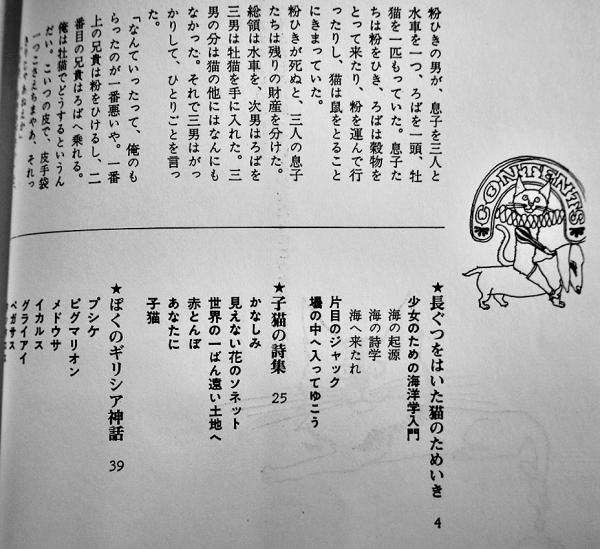 粉ひきの男が、息子を三人と
水車を一つ、ろばを一頭、牡
猫を一匹もっていた。息子た
ちは粉をひき、ろばは穀物を
とって来たり、粉を運んで行
ったりし、猫は鼠をとること
にきまっていた。
粉ひきが死ぬと、三人の息子
たちは残りの財産を分けた。
総領は水車を、次男はろばを
三男は牡猫を手に入れた。三
男の分は猫の他にはなんにも
なかった。それで三男はがっ
かりして、ひとりごとを言っ
た。
「なんていったって、俺のも
らったのが一番悪いや。一番
上の兄貴は粉をひけるし、二
番目の兄貴はろばへ乗れる。
俺は牡猫でどうするというん
だい。こいつの皮で、皮手袋
一つこさえちまやあ、それっ
CONTENTS
★長ぐつをはいた猫のためいき 4
少女のための海洋学入門
海の起源
海の詩学
海へ来たれ
片目のジャック
壜の中へ入ってゆこう
★子猫の詩集 25
かなしみ
見えない花のソネット
世界の一ばん遠い土地へ
赤とんぼ
あなたに
子猫
★ぼくのギリシア神話 39
プシケ
ピグマリオン
メドウサ
イカルス
グライアイ
ペガサス